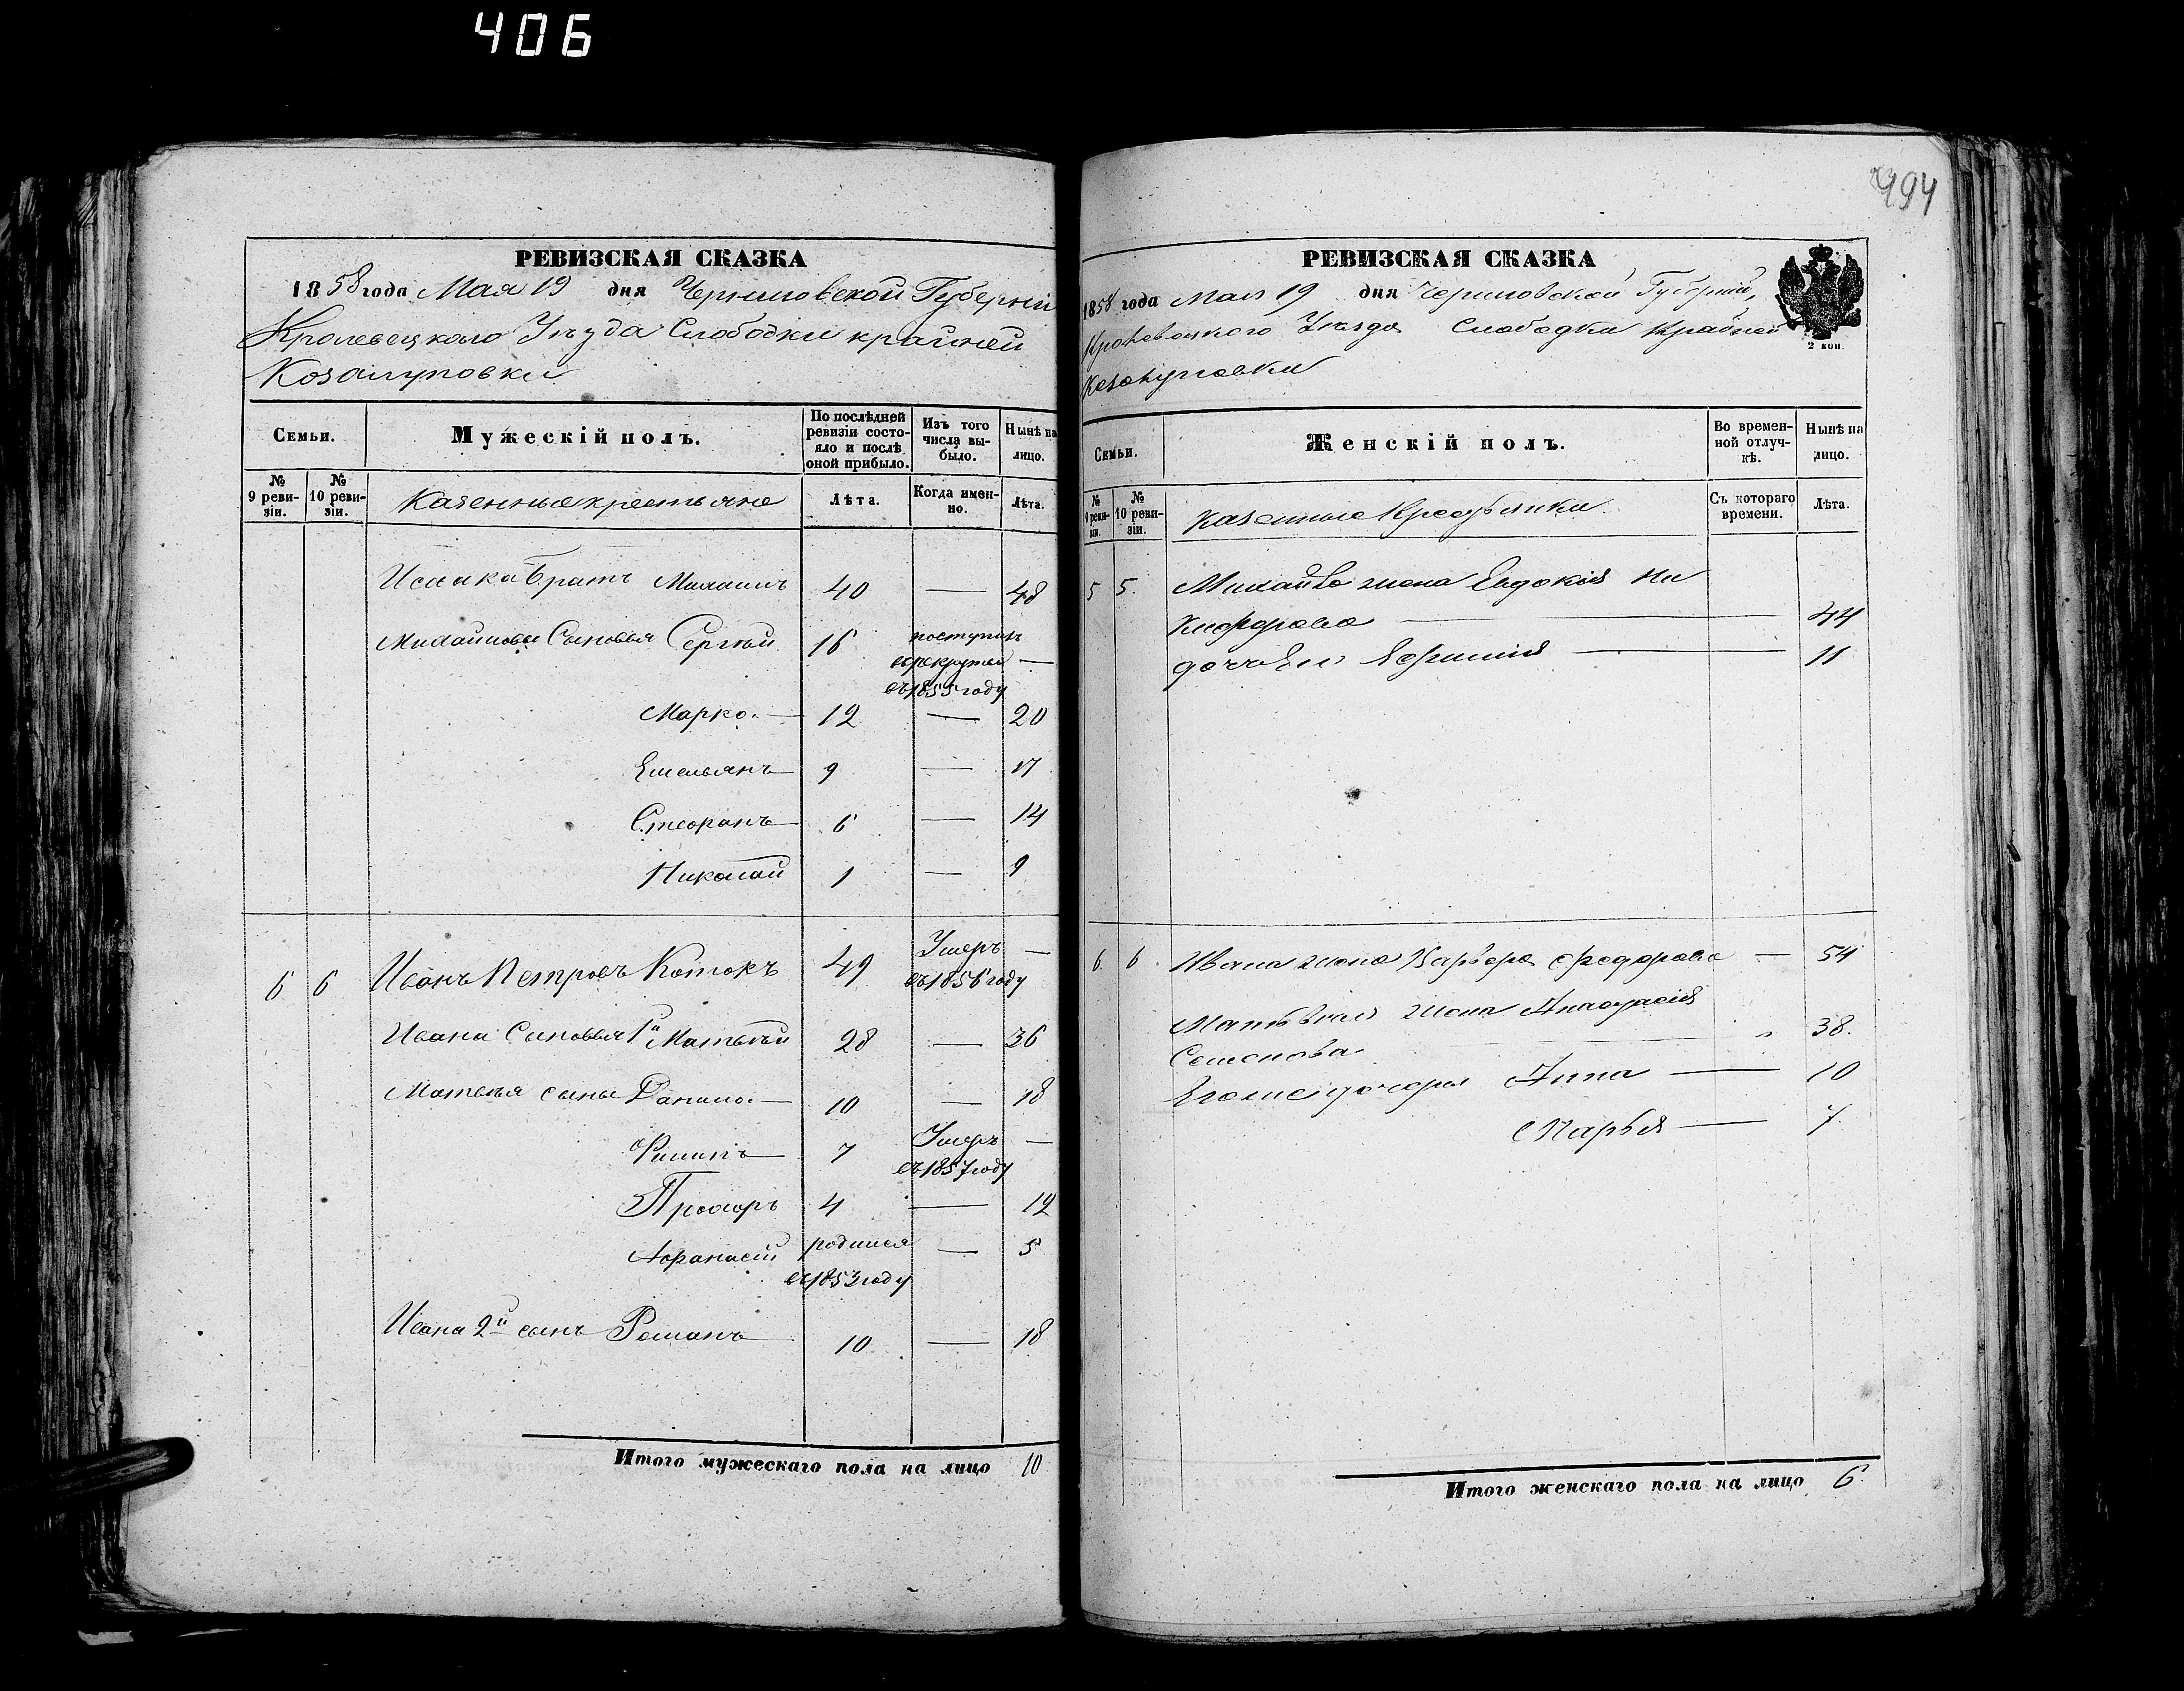 406
494
РЕВИЗСКАЯ СКАЗКА
1858 года Мая 19 дня Черниговской Губерніи
Кролевецкаго Уѣзда Слободки крайней
Козацуповки
Семьи.
Мужескій полъ.
По послѣдней ревизіи состо-
яло и послѣ оной прибыло.
Изъ того числа вы-
было.
Нынѣ на лицо.
№ 9 реви-
зіи.
№ 10 реви-
зіи.
Казенные крестьяне
Лѣта.
Когда имен-
но.
Лѣта.
Исаака братъ Михаилъ 40 — 48
Михайловы Сыновья Сергѣй 16 поступилъ —
въ рекруты
въ 1855 году
Марко — 12 — 20
Емельянъ — 9 — 17
Стефанъ — 6 — 14
Николай 1 — 9
6 6 Иванъ Петровъ Котокъ 49 Умеръ —
въ 1856 году
Ивана Сыновья 1й Матвѣй 28 — 36
Матвѣя сыны Данило — 10 — 18
Филипъ — 7 Умеръ —
въ 1857 году
Прохоръ 4 — 12
Афанасій родился — 5
въ 1853 году
Ивана 2й сынъ Романъ 10 — 18
Итого мужескаго пола на лицо 10
РЕВИЗСКАЯ СКАЗКА
1858 года Мая 19 дня Черниговской Губерніи,
Кролевецкого Уѣзда Слободки Крайней
2 коп.
Семьи.
Женскій полъ.
Во времен-
ной отлуч-
кѣ.
Нынѣ на лицо.
№ 9 реви-
зіи.
№ 10 реви-
зіи.
Казенные Крестьянки
Съ котораго времени.
Лѣта.
5 5. Михайла жена Евдокія Ни
кифорова — 44
дочь Ею Ефимія — 11
6. 6. Ивана жена Варвара Федорова — 54
Матвѣя жена Анастасія
Семенова — " 38.
Егоже дочеря Анна — 10
Марья — 7.
Итого женскаго пола на лицо 6.